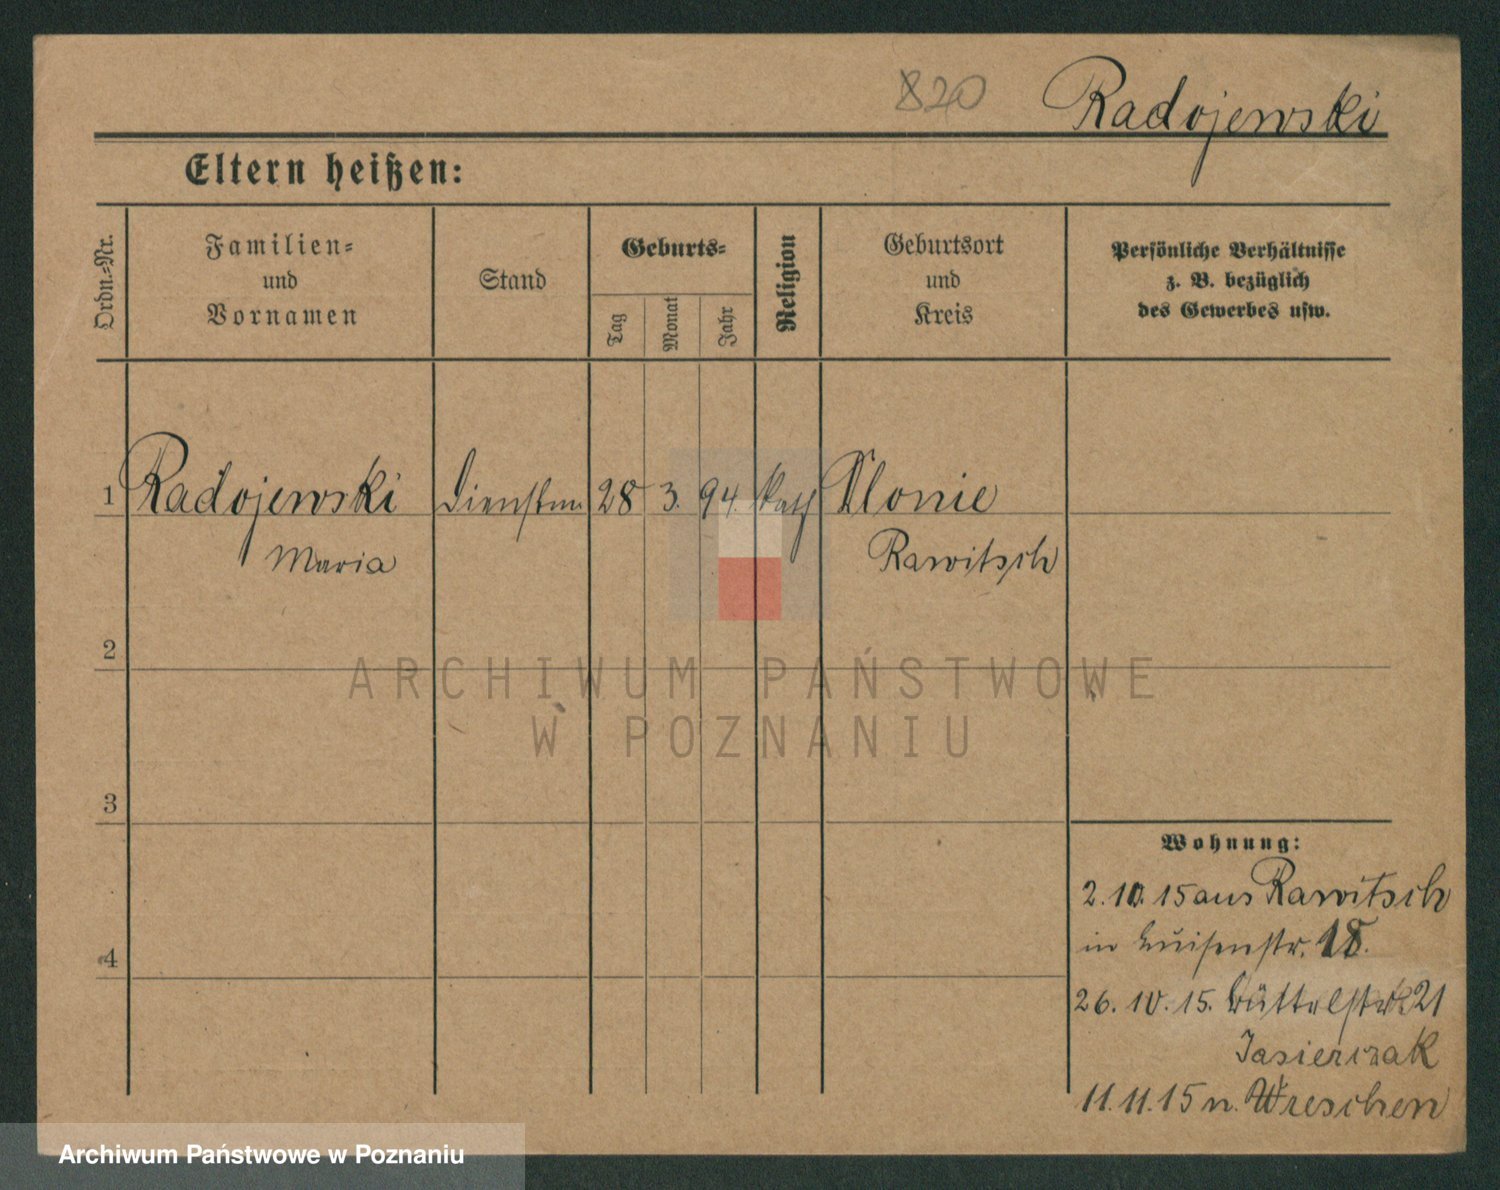 820 Radojewski
Eltern heißen:
Ordn.=Nr.
Familien=
und
Vornamen
Stand
Geburts=
Tag
Monat
Jahr
Religion
Geburtsort
und
Kreis
Persönliche Verhältnisse
z. B. bezüglich
des Gewerbes usw.
1 Radojewski Dienstm. 28 3. 94. kath Slonie
Maria Rawitsch
2
3
4
Wohnung:
2. 10. 15 aus Rawitsch
in Luisenstr. 18.
26. 10. 15. Büttelstr. 21
Jasierczak
11. 11. 15 n. Wreschen
ARCHIWUM PAŃSTWOWE
W POZNANIU
Archiwum Państwowe w Poznaniu